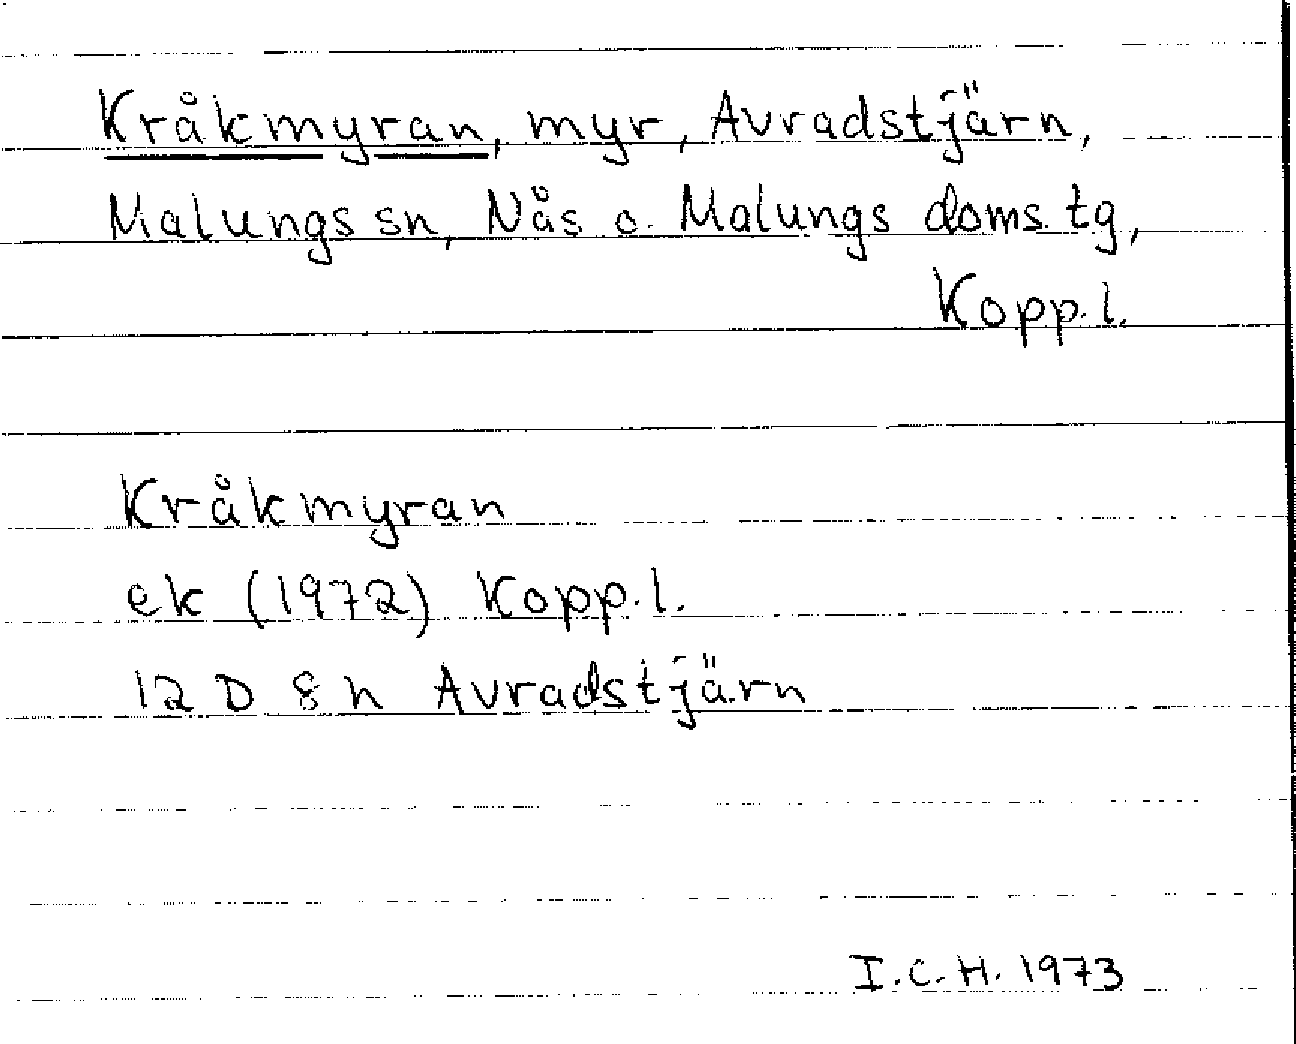 Kråkmyran, myr, Avradstjärn,
Malungs sn, Nås o. Malungs doms.tg,
Kopp.l.
Kråkmyran
ek (1972) Kopp.l.
12 D 8 h Avradstjärn
I.C.H. 1973